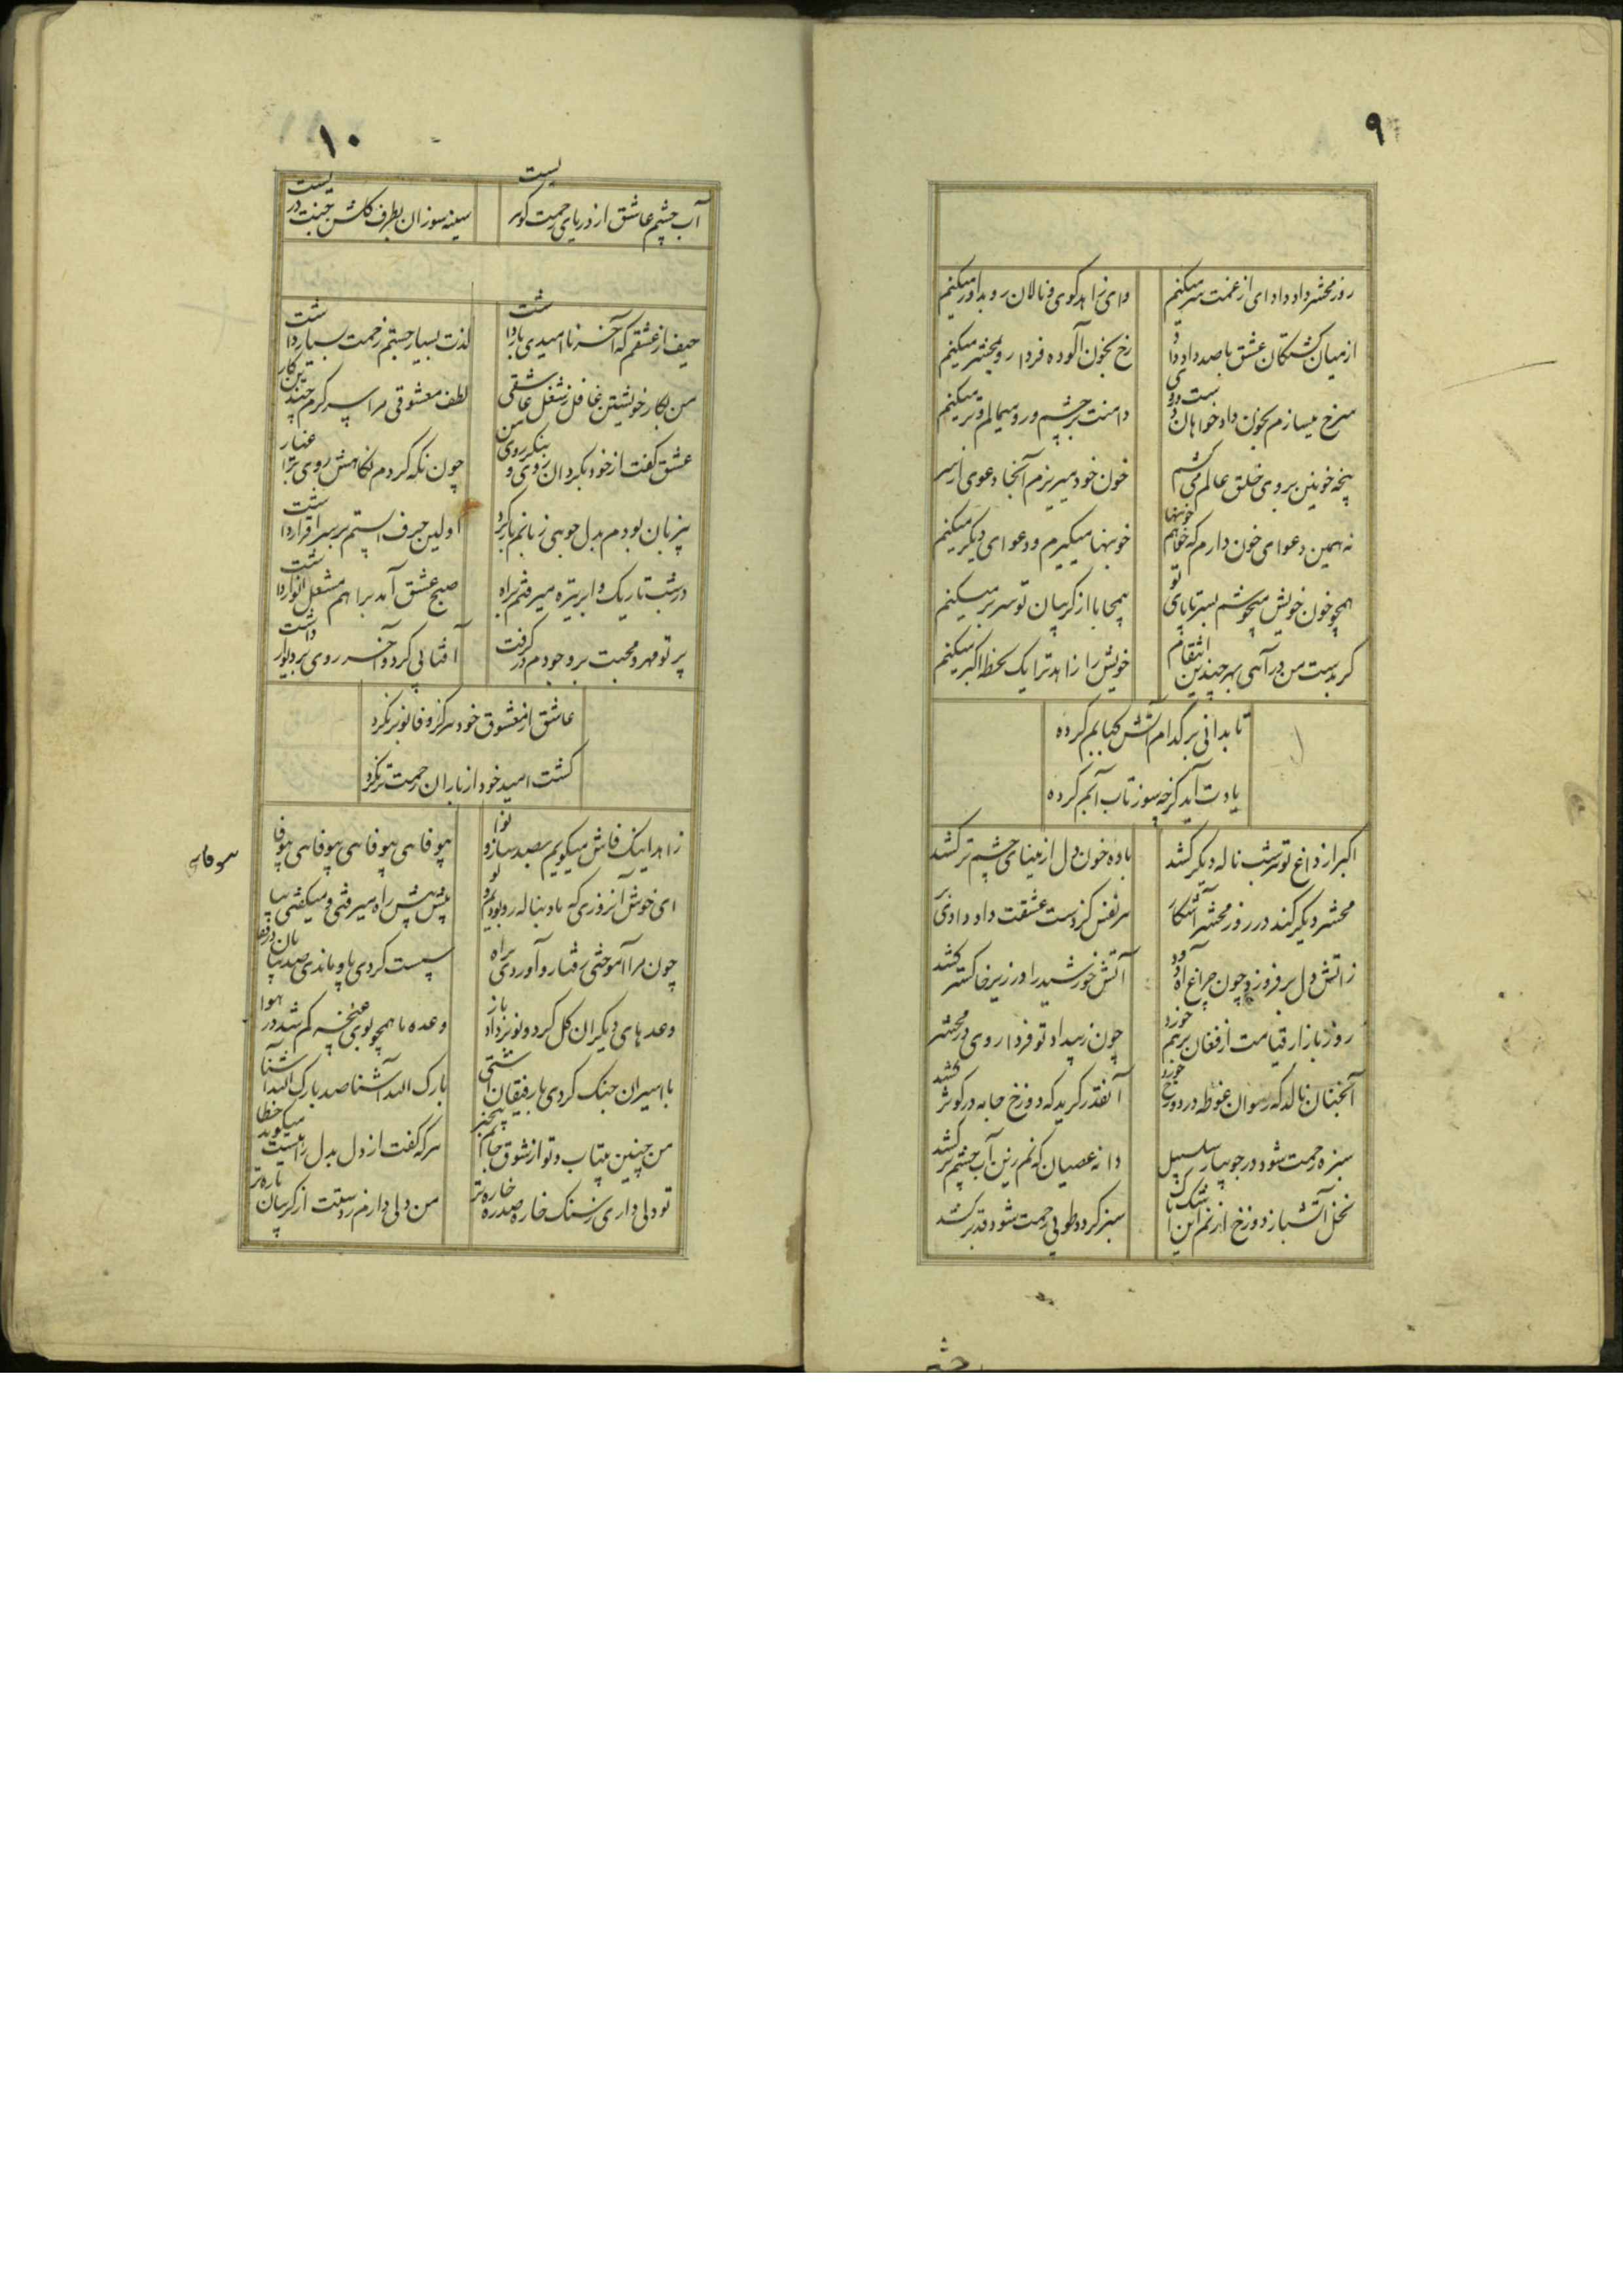 ۹
روز محشر داد دادای از غمت سر میکنم
وای زاهد کوی و نالان رو بداور میکنم
از میان کشتکان عشق با صد داد داد
رخ بخون آلوده فردا رو بمحشر میکنم
سرخ میسازم بخون داد خواهان
دامنت بر چشم و رو میمالم و تر میکنم
پنجه خونین بروی خلق عالم می کشم
خون خود میریزم آنجا دعوی از سر
نه همین دعوای خون دارم که خواهم خونبها
خونبها میکیرم و دعوای دیکر میکنم
همچو خون خویش میجوشم بسر تا پای تو
از کریبان تو سر بر میکنم
کر بدست من در آهی بهر چندین انتقام
خویش را زاهد ترا یک لحظه اکبر میکنم
تا بدانی بر کدام آتش کبابم کرده
یادت آید کز چه سوز تاب آبم کرده
اکبر از داغ تو هر شب ناله دیکر کشد
باده خون دل از مینای چشم تر کشد
محشر دیکر کند در روز محشر آشکار
هر نفس کز دست عشقت داد داد
زاتش دل بر فروزد چون چراغ آه
آتش خورشید را در زیر خاکستر کشد
روز بازار قیامت از فغان بر هم خورد
چون ز بیداد تو فردا روی در محشر
آنچنان نالد که رضوان غوطه در دوزخ خورد
آنقدر کرید که دوزخ جابه در کوثر کشد
سبزه رحمت شود در جویبار سلسبیل
دانه عصیان که نم زین آب چشم تر کشد
نخل آتشبار دوزخ از نم این اشک
سبز کردد طوبی رحمت شود قد بر کشد
۱۰
آب چشم عاشق از دریای رحمت کوثریست
سینه سوزان بطرف کلشن جنت دریست
حیف از عشقم که آخر ناامیدی بار داشت
لذت بسیار جستم زحمت بسیار داشت
من بکار خویشتن غافل ز شغل عاشقی
لطف معشوقی مرا سر کرم چندین کار
عشق کفت از خود بکردان روی و بنکر روی من
چون نکه کردم نکاهش روی
بیزبان بودم بدل حوبی زبانم باز کرد
اولین حرف الستم بر سر اقرار داشت
در شب تاریک و ابر تیره میرفتم براه
صبح عشق آمد براهم مشعل انوار داشت
پرتو مهر و محبت بر وجودم در کرفت
آفتابی کرد و آخر روی بر دیوار داشت
عاشق از معشوق خود هرکز وفا نوبر نکرد
کشت امید خود از باران رحمت تر نکرد
زاهد اینک فاش میکویم بصد ساز و نوا
بیوفاهی بیوفاهی بیوفاهی بیوفا
ای خوش آنروزی که ما دنباله رو بودیم و تو
پیش پیش راه میرفتی و میکفتی بیا
چون مرا آموختی رفتار و آوردی براه
سست کردی پا و ماندی
وعدهای دیکران کل کرد و نوبر داد باز
وعده ما همچو بوی غنچه کم شد در هوا
با اسیران جنک کردی با رفیقان آشتی
بارک الله آشنا صد بارک الله آشنا
من چنین بیتاب و تو از شوق جانم بیخبر
هر که کفت از دل بدل راهیست میکوید خطا
تو دلی داری ز سنک خاره صد ره خاره تر
من دلی دارم ز دستت از کریبان پاره تر
بیوفاهی